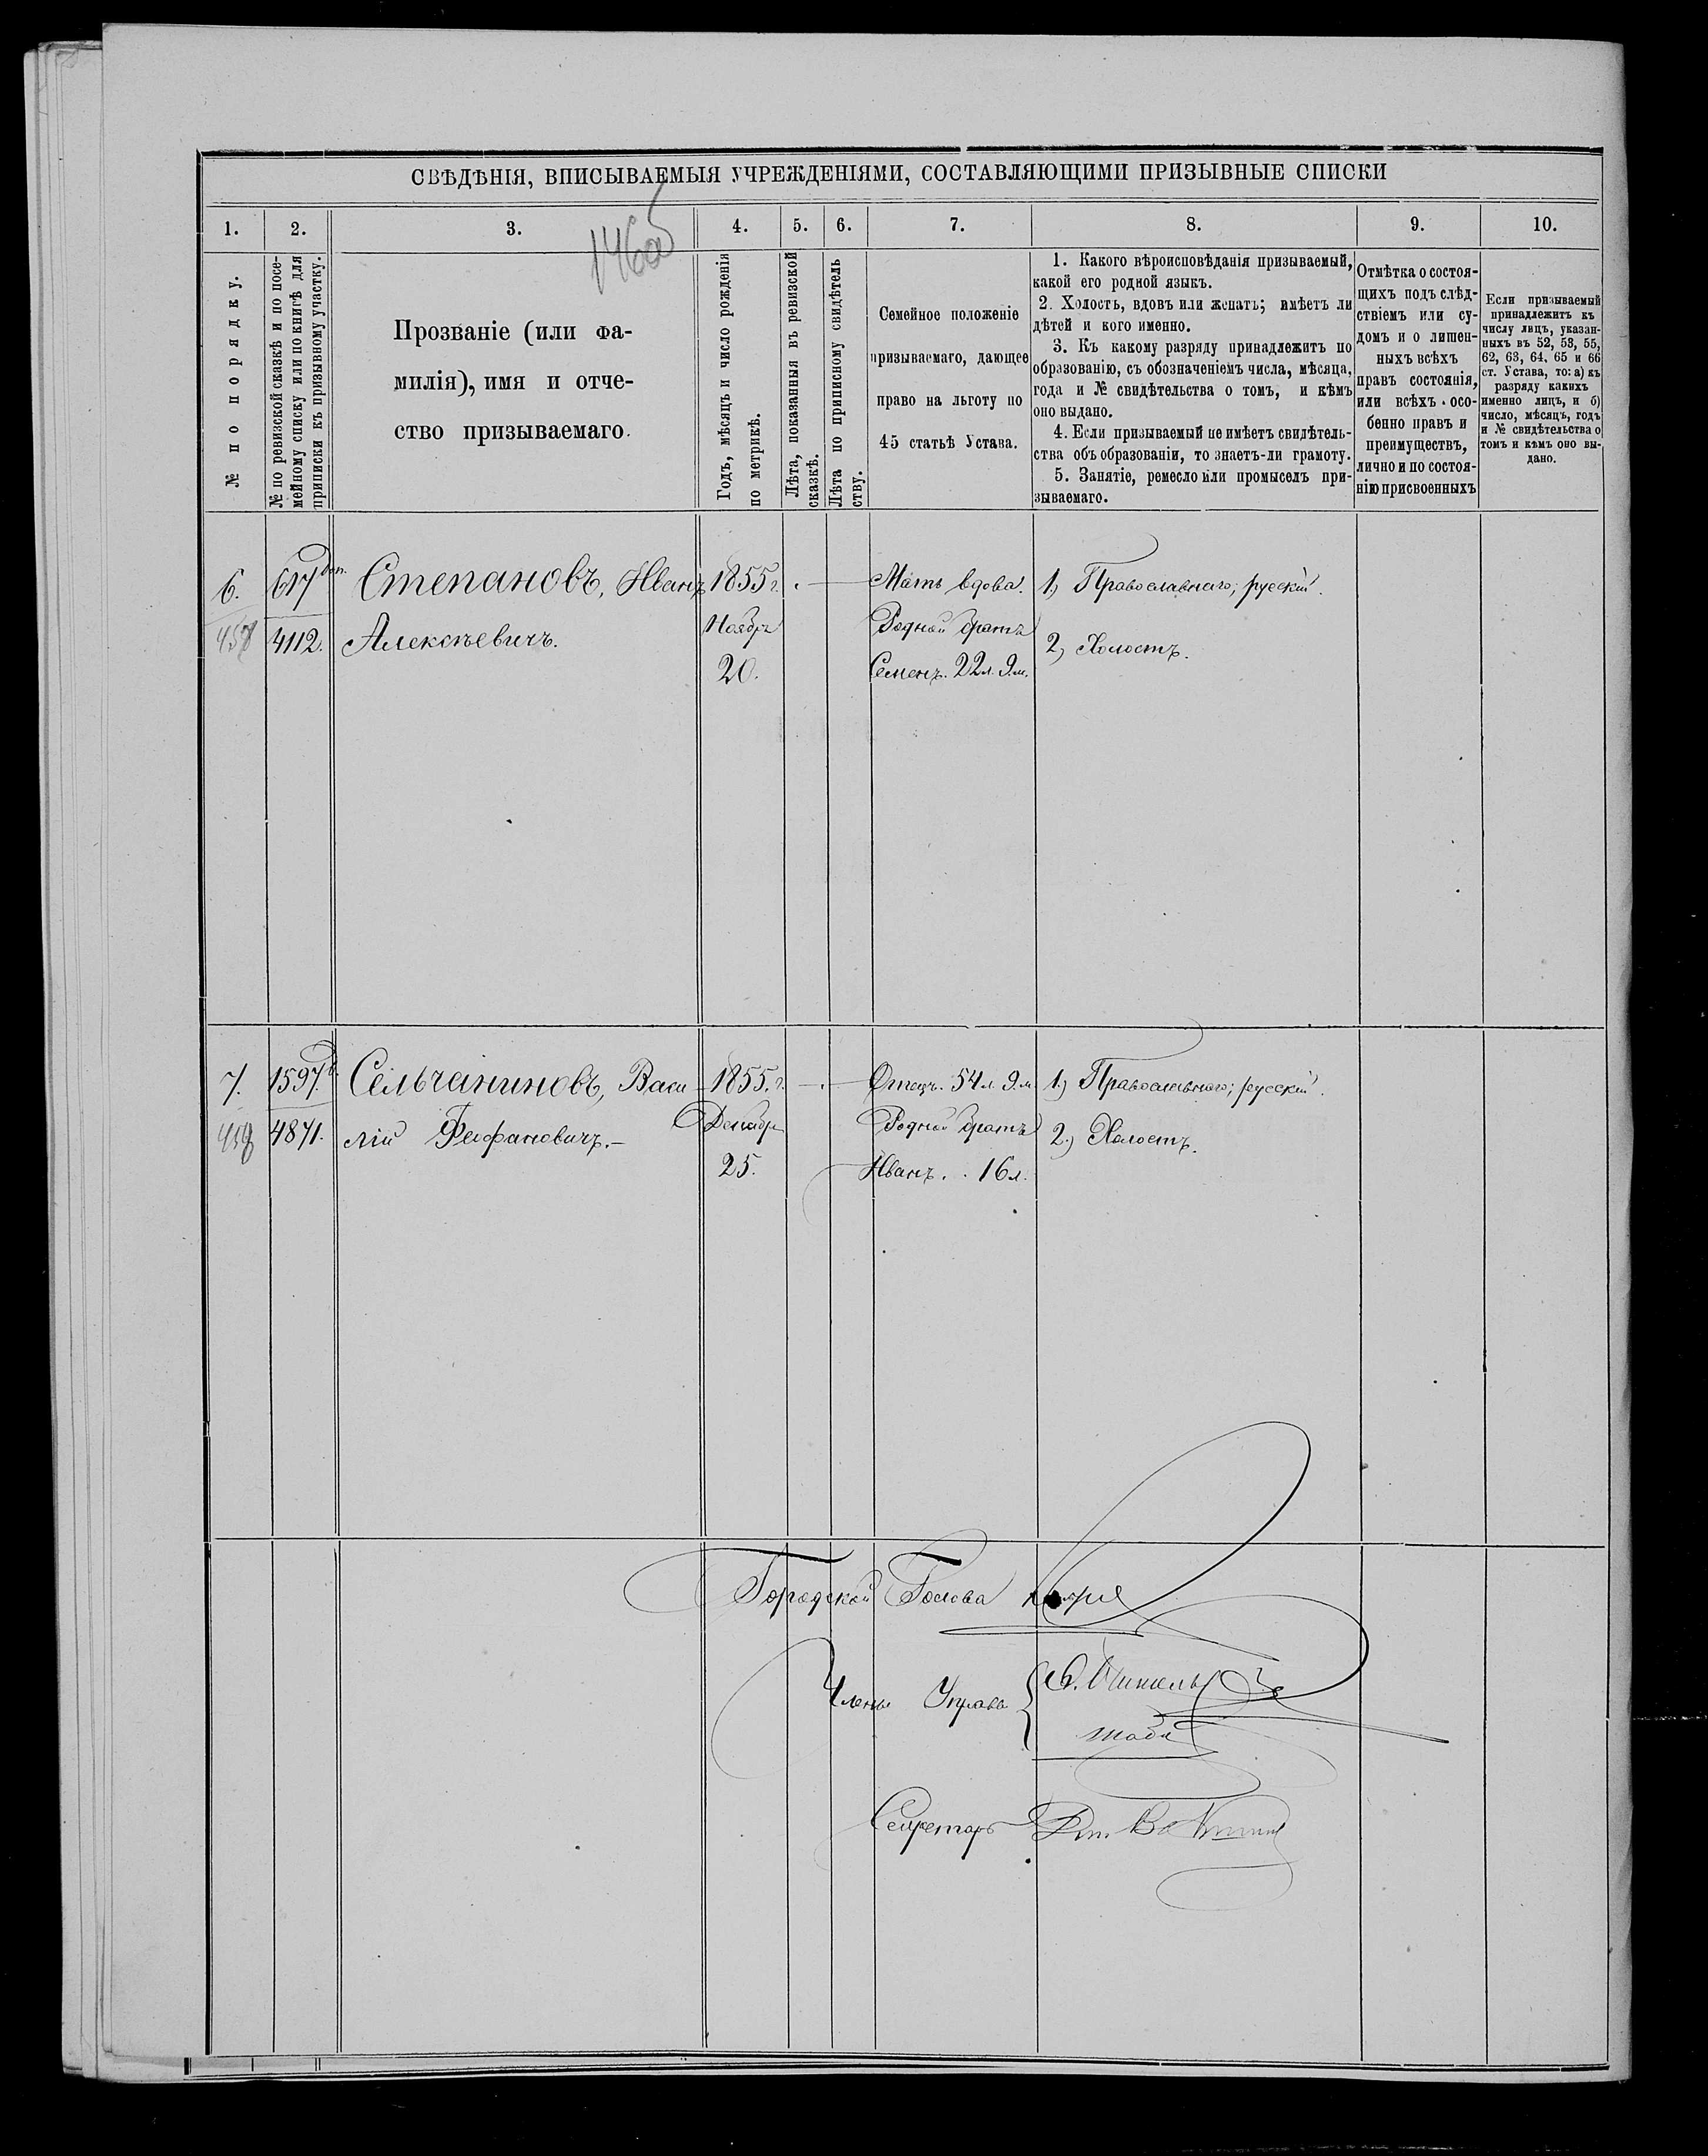 146об
СВѢДѢНІЯ, ВПИСЫВАЕМЫЯ УЧРЕЖДЕНІЯМИ, СОСТАВЛЯЮЩИМИ ПРИЗЫВНЫЕ СПИСКИ
1. 2. 3. 4. 5. 6. 7. 8. 9. 10.
№ по порядку.
№ по ревизской сказкѣ и по посе-
мейному списку или по книгѣ для
приписки къ призывному участку.
Прозваніе (или фа-
милія), имя и отче-
ство призываемаго.
Годъ, мѣсяцъ и число рожденія
по метрикѣ.
Лѣта, показанныя въ ревизской
сказкѣ.
Лѣта по приписному свидѣтель
ству.
Семейное положеніе
призываемаго, дающее
право на льготу по
45 статьѣ Устава.
1. Какого вѣроисповѣданія призываемый,
какой его родной языкъ.
2. Холостъ, вдовъ или женатъ; имѣетъ ли
дѣтей и кого именно.
3. Къ какому разряду принадлежитъ по
образованію, съ обозначеніемъ числа, мѣсяца,
года и № свидѣтельства о томъ, и кѣмъ
оно выдано.
4. Если призываемый не имѣетъ свидѣтель-
ства объ образованіи, то знаетъ-ли грамоту.
5. Занятіе, ремесло или промыселъ при-
зываемаго.
Отмѣтка о состоя-
щихъ подъ слѣд-
ствіемъ или су-
домъ и о лишен-
ныхъ всѣхъ
правъ состоянія,
или всѣхъ осо-
бенно правъ и
преимуществъ,
лично и по состоя-
нію присвоенныхъ
Если призываемый
принадлежитъ къ
числу лицъ, указан-
ныхъ въ 52, 53, 55,
62, 63, 64, 65 и 66
ст. Устава, то: а) къ
разряду какихъ
именно лицъ, и б)
число, мѣсяцъ, годъ
и № свидѣтельства о
томъ и кѣмъ оно вы-
дано.
6. 617 доп. Степановъ, Иванъ 1855 г. — Мать вдова. 1, Православнаго; русскій.
4112. Алексѣевичъ. Ноябр Родной братъ 2, Холостъ.
20. Семенъ. 22 л. 9 м.
7. 1597. Сельчаниновъ, Васи 1855. г. — Отецъ. 54 л. 9 м. 1.) Православнаго; русскій.
4871. лій Фефановичъ.— Декабр Родной братъ 2.) Холостъ.
25. Иванъ. . 16 л.
Городской Голова
Члены Управы
Секретарь